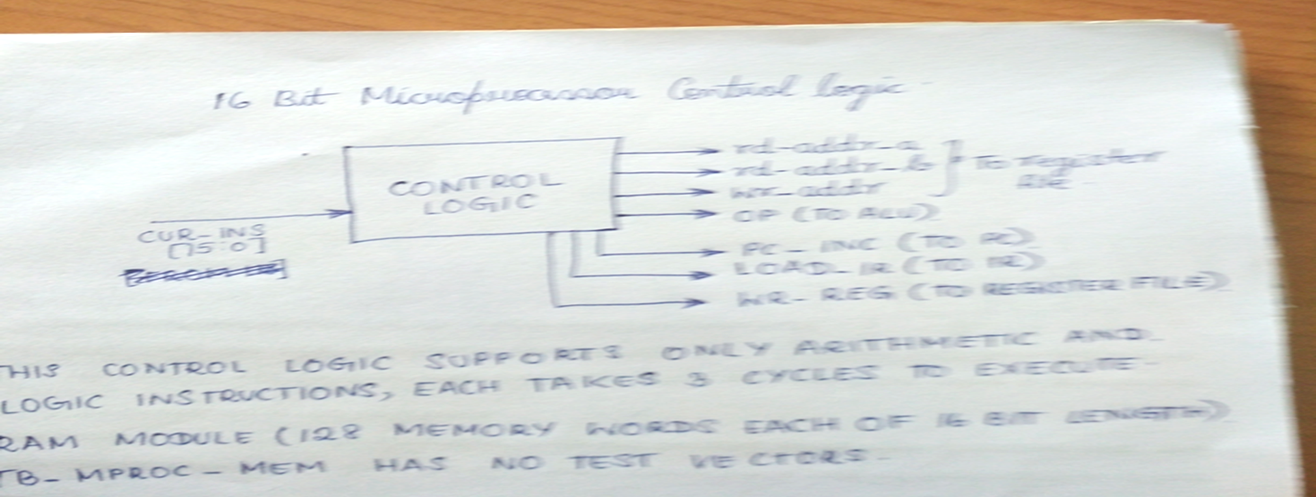 16 Bit Microprocessor Control logic
rd-addr-a
rd-addr-b
wr-addr
To register file
CONTROL LOGIC
OP (TO ALU)
CUR-INS
[15:0]
PC-INC (TO PC)
LOAD-IR (TO IR)
WR-REG (TO REGISTER FILE)
THIS CONTROL LOGIC SUPPORTS ONLY ARITHMETIC AND
LOGIC INSTRUCTIONS, EACH TAKES 3 CYCLES TO EXECUTE
RAM MODULE (128 MEMORY WORDS EACH OF 16 BIT LENGTH)
TB-MPROC-MEM HAS NO TEST VECTORS.